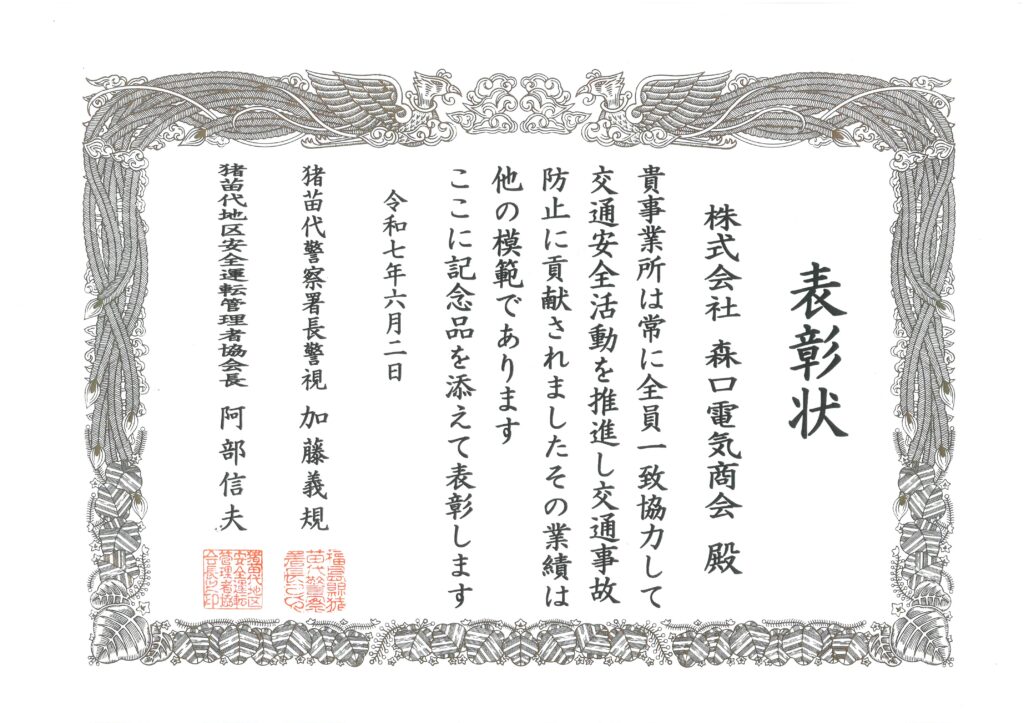 表彰状
株式会社 森口電気商会 殿
貴事業所は常に全員一致協力して
交通安全活動を推進し交通事故
防止に貢献されましたその業績は
他の模範であります
ここに記念品を添えて表彰します
令和七年六月二日
猪苗代警察署長警視 加藤義規
福島縣猪
苗代警察
署長之印
猪苗代地区安全運転管理者協会長 阿部信夫
猪苗代地区
安全運転
管理者協
会長之印